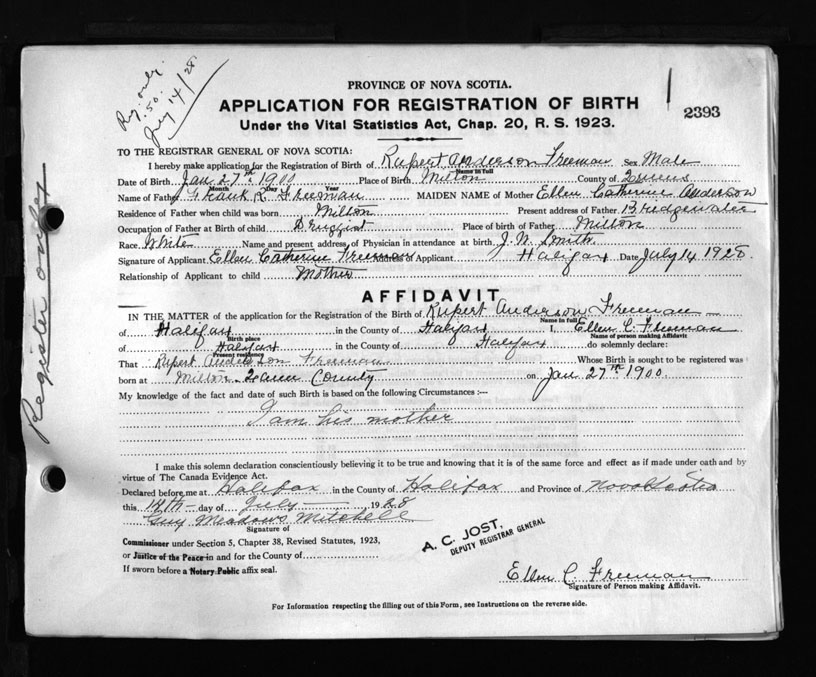 Reg. only.
.50.
July 14/28
Register only
PROVINCE OF NOVA SCOTIA.
APPLICATION FOR REGISTRATION OF BIRTH
Under the Vital Statistics Act, Chap. 20, R. S. 1923.
2393
TO THE REGISTRAR GENERAL OF NOVA SCOTIA:
I hereby make application for the Registration of Birth of Rupert Anderson Freeman Sex Male
Name in full
Date of Birth Jan 27th 1900 Place of Birth Milton County of Queens
Month Day Year
Name of Father Frank R. Freeman MAIDEN NAME of Mother Ellen Catherine Anderson
Residence of Father when child was born Milton Present address of Father Bridgewater
Occupation of Father at Birth of child Druggist Place of birth of Father Milton
Race White Name and present address of Physician in attendance at birth J. W. Smith
Signature of Applicant Ellen Catherine Freeman Address of Applicant Halifax Date July 14 1928.
Relationship of Applicant to child Mother
AFFIDAVIT
IN THE MATTER of the application for the Registration of the Birth of Rupert Anderson Freeman
Name in full
of Halifax in the County of Halifax I, Ellen C. Freeman
Birth place Name of person making Affidavit
of Halifax in the County of Halifax do solemnly declare:
Present residence
That Rupert Anderson Freeman Whose Birth is sought to be registered was
born at Milton Queens County on Jan 27th 1900.
My knowledge of the fact and date of such Birth is based on the following Circumstances :—
I am his mother
I make this solemn declaration conscientiously believing it to be true and knowing that it is of the same force and effect as if made under oath and by
virtue of The Canada Evidence Act.
Declared before me at Halifax in the County of Halifax and Province of Nova Scotia
this 14th day of July 1928
Guy Meadows Mitchell
Signature of
Commissioner under Section 5, Chapter 38, Revised Statutes, 1923,
or Justice of the Peace in and for the County of
If sworn before a Notary Public affix seal.
A. C. JOST,
DEPUTY REGISTRAR GENERAL
Ellen C. Freeman
Signature of Person making Affidavit.
For Information respecting the filling out of this Form, see Instructions on the reverse side.